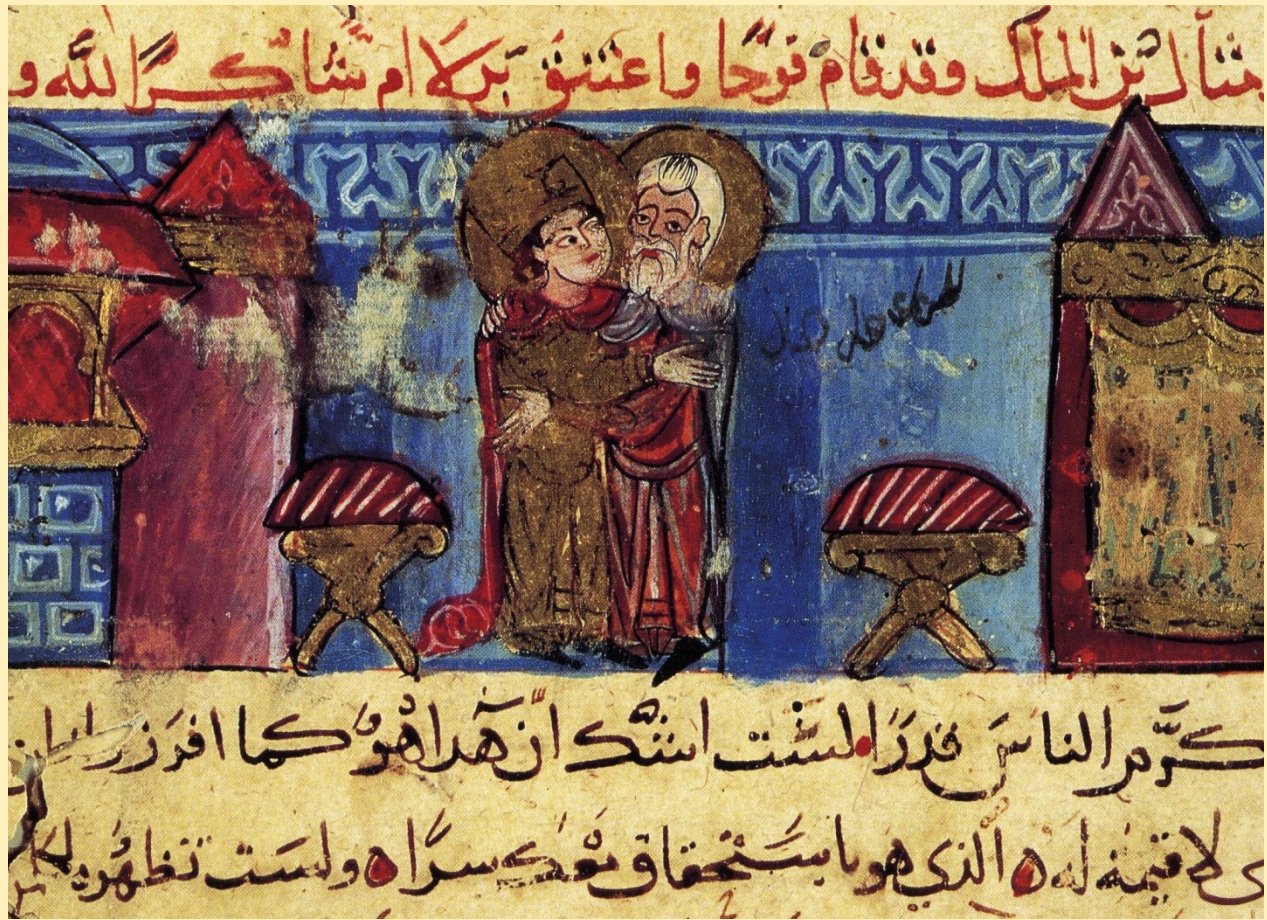 لبن الملك وقد قام فرحا واعتنق برلا ام شاكرًا لله و
الناس قدرًا لست اشك انّ هذا هو كما
لا قيمة له الذي هو باستحقاق معك سرًا ولست تظهره